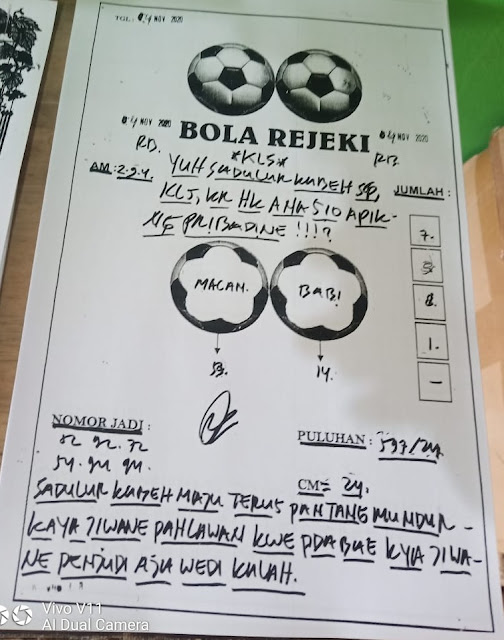 TGL: 04 NOV 2020
04 NOV 2020 04 NOV 2020
BOLA REJEKI
RD. *KLS* RD.
AM: 2.9.4. YUH SADULUR KABEH JUMLAH :
KLJ, KR HK ANA SIO APIK-
NE PRIBADINE !!!?
7.
8.
1.
–
MACAN. BABI
53. 14.
NOMOR JADI :
PULUHAN :
CM= 24.
SADULUR KABEH MAJU TERUS PANTANG MUNDUR -
KAYA JIWANE PAHLAWAN KWE PDA BAE KYA JIWA-
NE PENJUDI AJA WEDI KALAH.
Vivo V11
AI Dual Camera